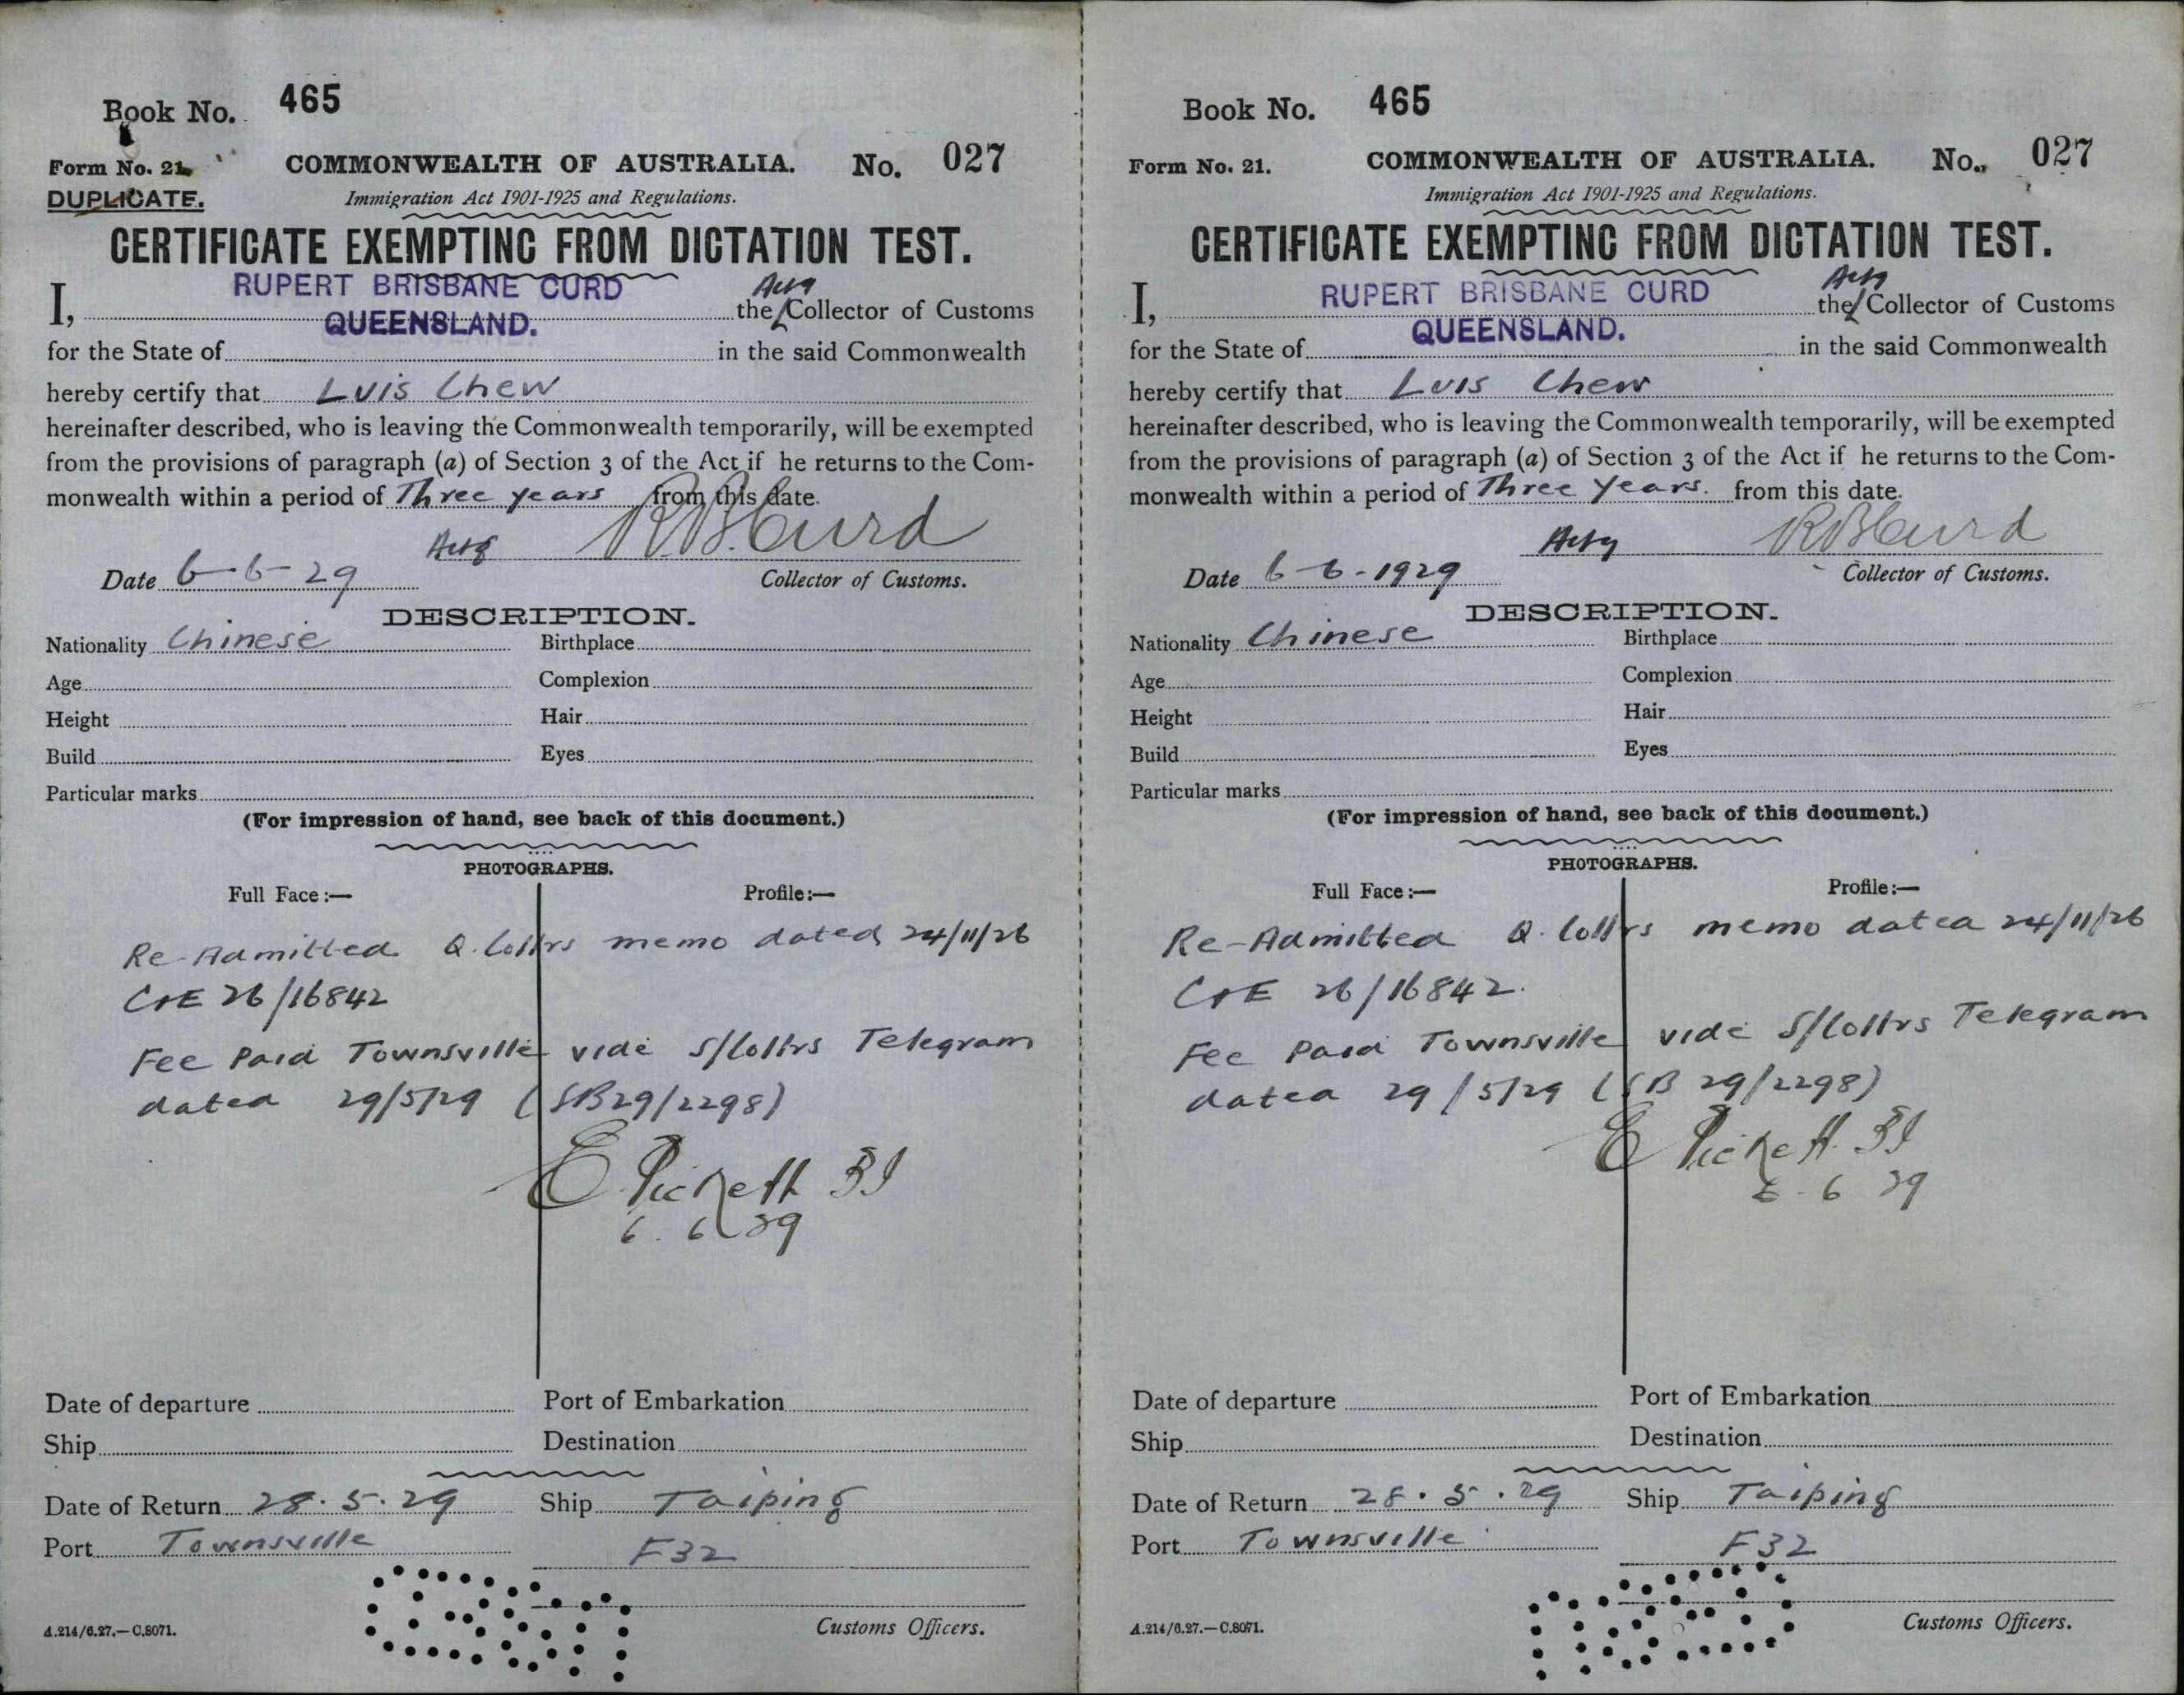 Book No. 465
Form No. 21. COMMONWEALTH OF AUSTRALIA. No. 027
DUPLICATE. Immigration Act 1901-1925 and Regulations.
CERTIFICATE EXEMPTING FROM DICTATION TEST.
I, RUPERT BRISBANE CURD the Actg Collector of Customs
for the State of QUEENSLAND. in the said Commonwealth
hereby certify that Luis Chew
hereinafter described, who is leaving the Commonwealth temporarily, will be exempted
from the provisions of paragraph (a) of Section 3 of the Act if he returns to the Com-
monwealth within a period of Three years from this date.
Actg R B Curd
Date 6-6-29 Collector of Customs.
DESCRIPTION.
Nationality Chinese Birthplace
Age Complexion
Height Hair
Build Eyes
Particular marks
(For impression of hand, see back of this document.)
PHOTOGRAPHS.
Full Face:— Profile:—
Re-Admitted Q. Colltrs memo dated 24/11/26
C&E 26/16842
Fee Paid Townsville vide S/Colltrs Telegram
dated 29/5/29 (SB29/2298)
E Pickett BI
6.6.29
Date of departure Port of Embarkation
Ship Destination
Date of Return 28.5.29 Ship Taiping
Port Townsville F32
A.214/6.27.—C.8071. Customs Officers.
Book No. 465
Form No. 21. COMMONWEALTH OF AUSTRALIA. No. 027
Immigration Act 1901-1925 and Regulations.
CERTIFICATE EXEMPTING FROM DICTATION TEST.
I, RUPERT BRISBANE CURD the Actg Collector of Customs
for the State of QUEENSLAND. in the said Commonwealth
hereby certify that Luis Chew
hereinafter described, who is leaving the Commonwealth temporarily, will be exempted
from the provisions of paragraph (a) of Section 3 of the Act if he returns to the Com-
monwealth within a period of Three Years. from this date.
Actg R B Curd
Date 6-6-1929 Collector of Customs.
DESCRIPTION.
Nationality Chinese Birthplace
Age Complexion
Height Hair
Build Eyes
Particular marks
(For impression of hand, see back of this document.)
PHOTOGRAPHS.
Full Face:— Profile:—
Re-Admitted Q. Colltrs memo dated 24/11/26
C&E 26/16842.
Fee Paid Townsville vide S/Colltrs Telegram
dated 29/5/29 (SB 29/2298)
E Pickett BI
6.6 29
Date of departure Port of Embarkation
Ship Destination
Date of Return 28.5.29 Ship Taiping
Port Townsville F32
A.214/6.27.—C.8071. Customs Officers.